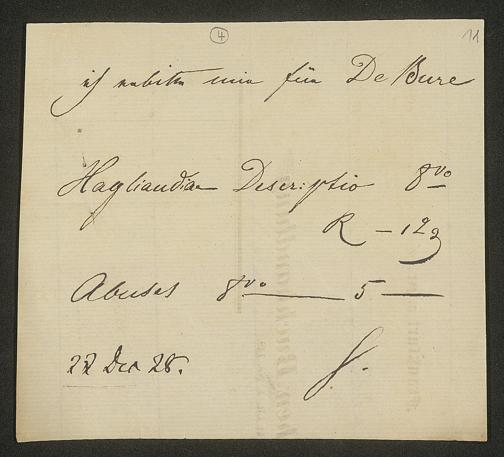 4
11
ich erbitte mir für De Bure
Hagliaudiae Descriptio 8vo
R — 12g
Abuses 8vo — 5 —
22 Dec 28.